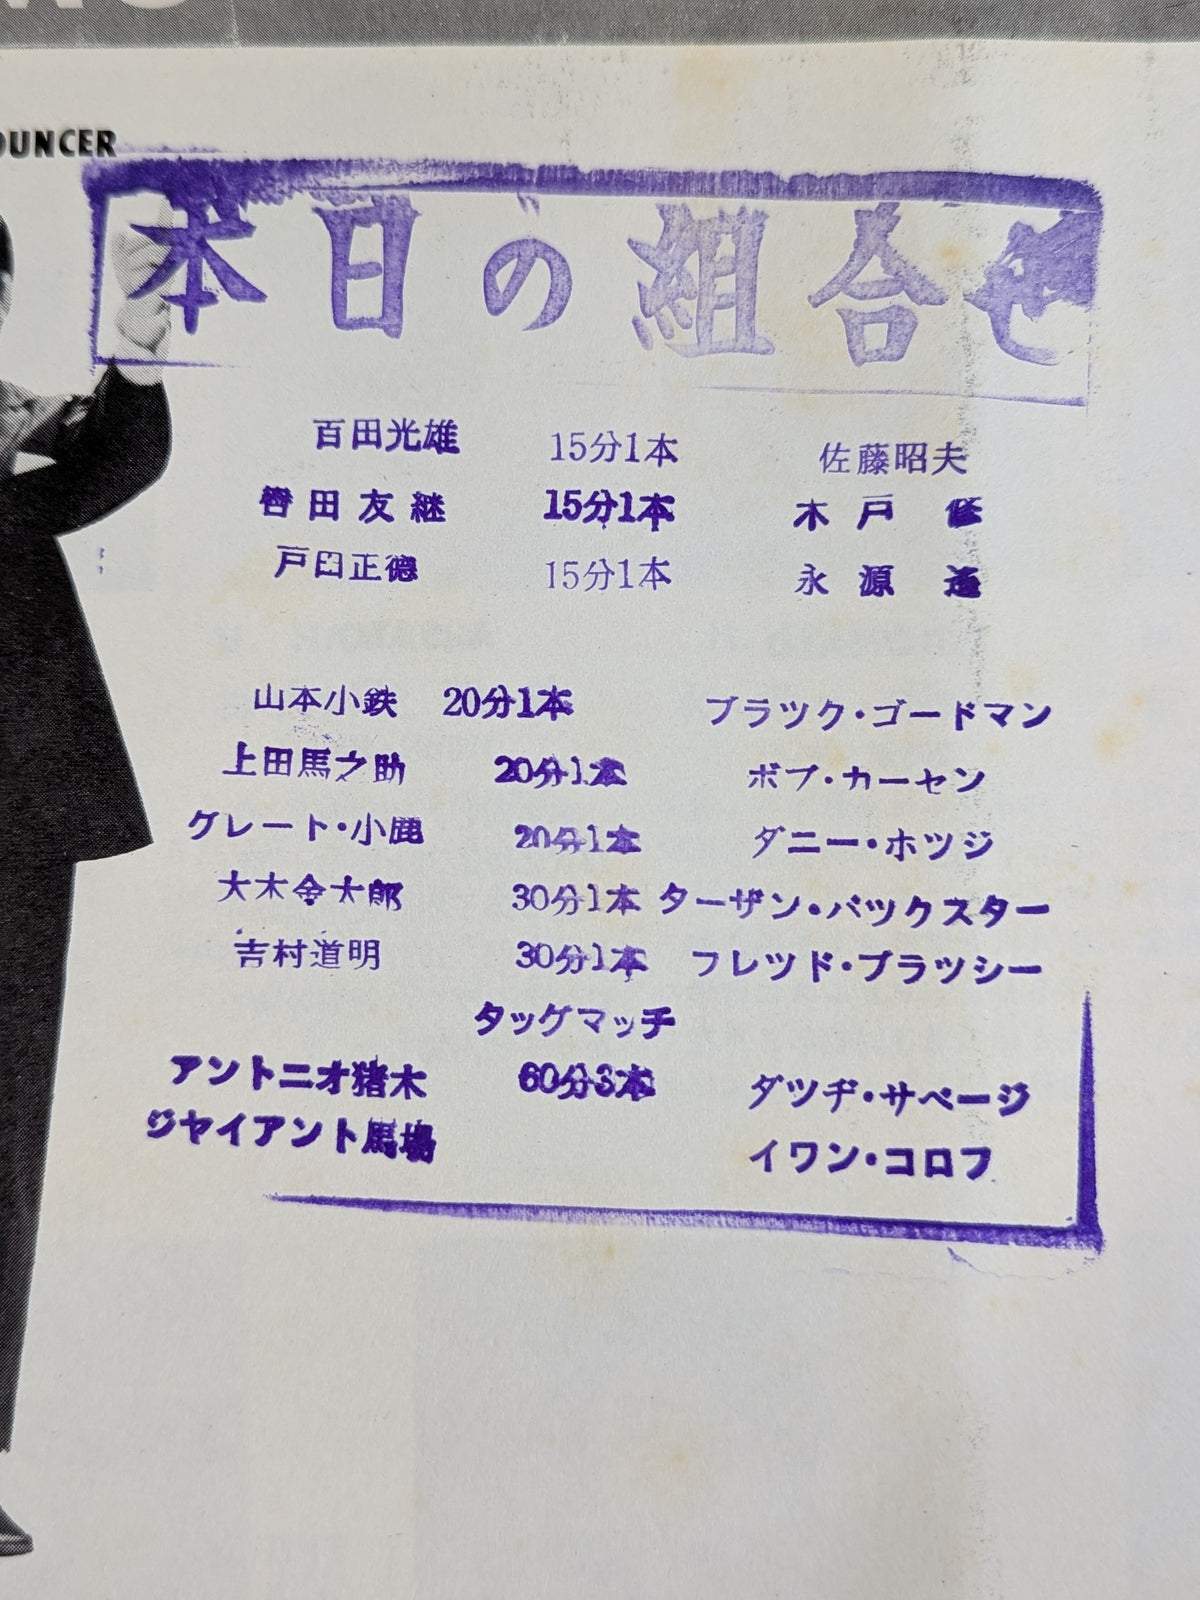 OUNCER
本日の組合せ
百田光雄 15分1本 佐藤昭夫
轡田友継 15分1本 木戸 修
戸口正徳 15分1本 永源 遙
山本小鉄 20分1本 ブラツク・ゴードマン
上田馬之助 20分1本 ボブ・カーセン
グレート・小鹿 20分1本 ダニー・ホツジ
大木金太郎 30分1本 ターザン・バツクスター
吉村道明 30分1本 フレツド・ブラツシー
タッグマッチ
アントニオ猪木 60分3本 ダツヂ・サベージ
ジヤイアント馬場 イワン・コロフ